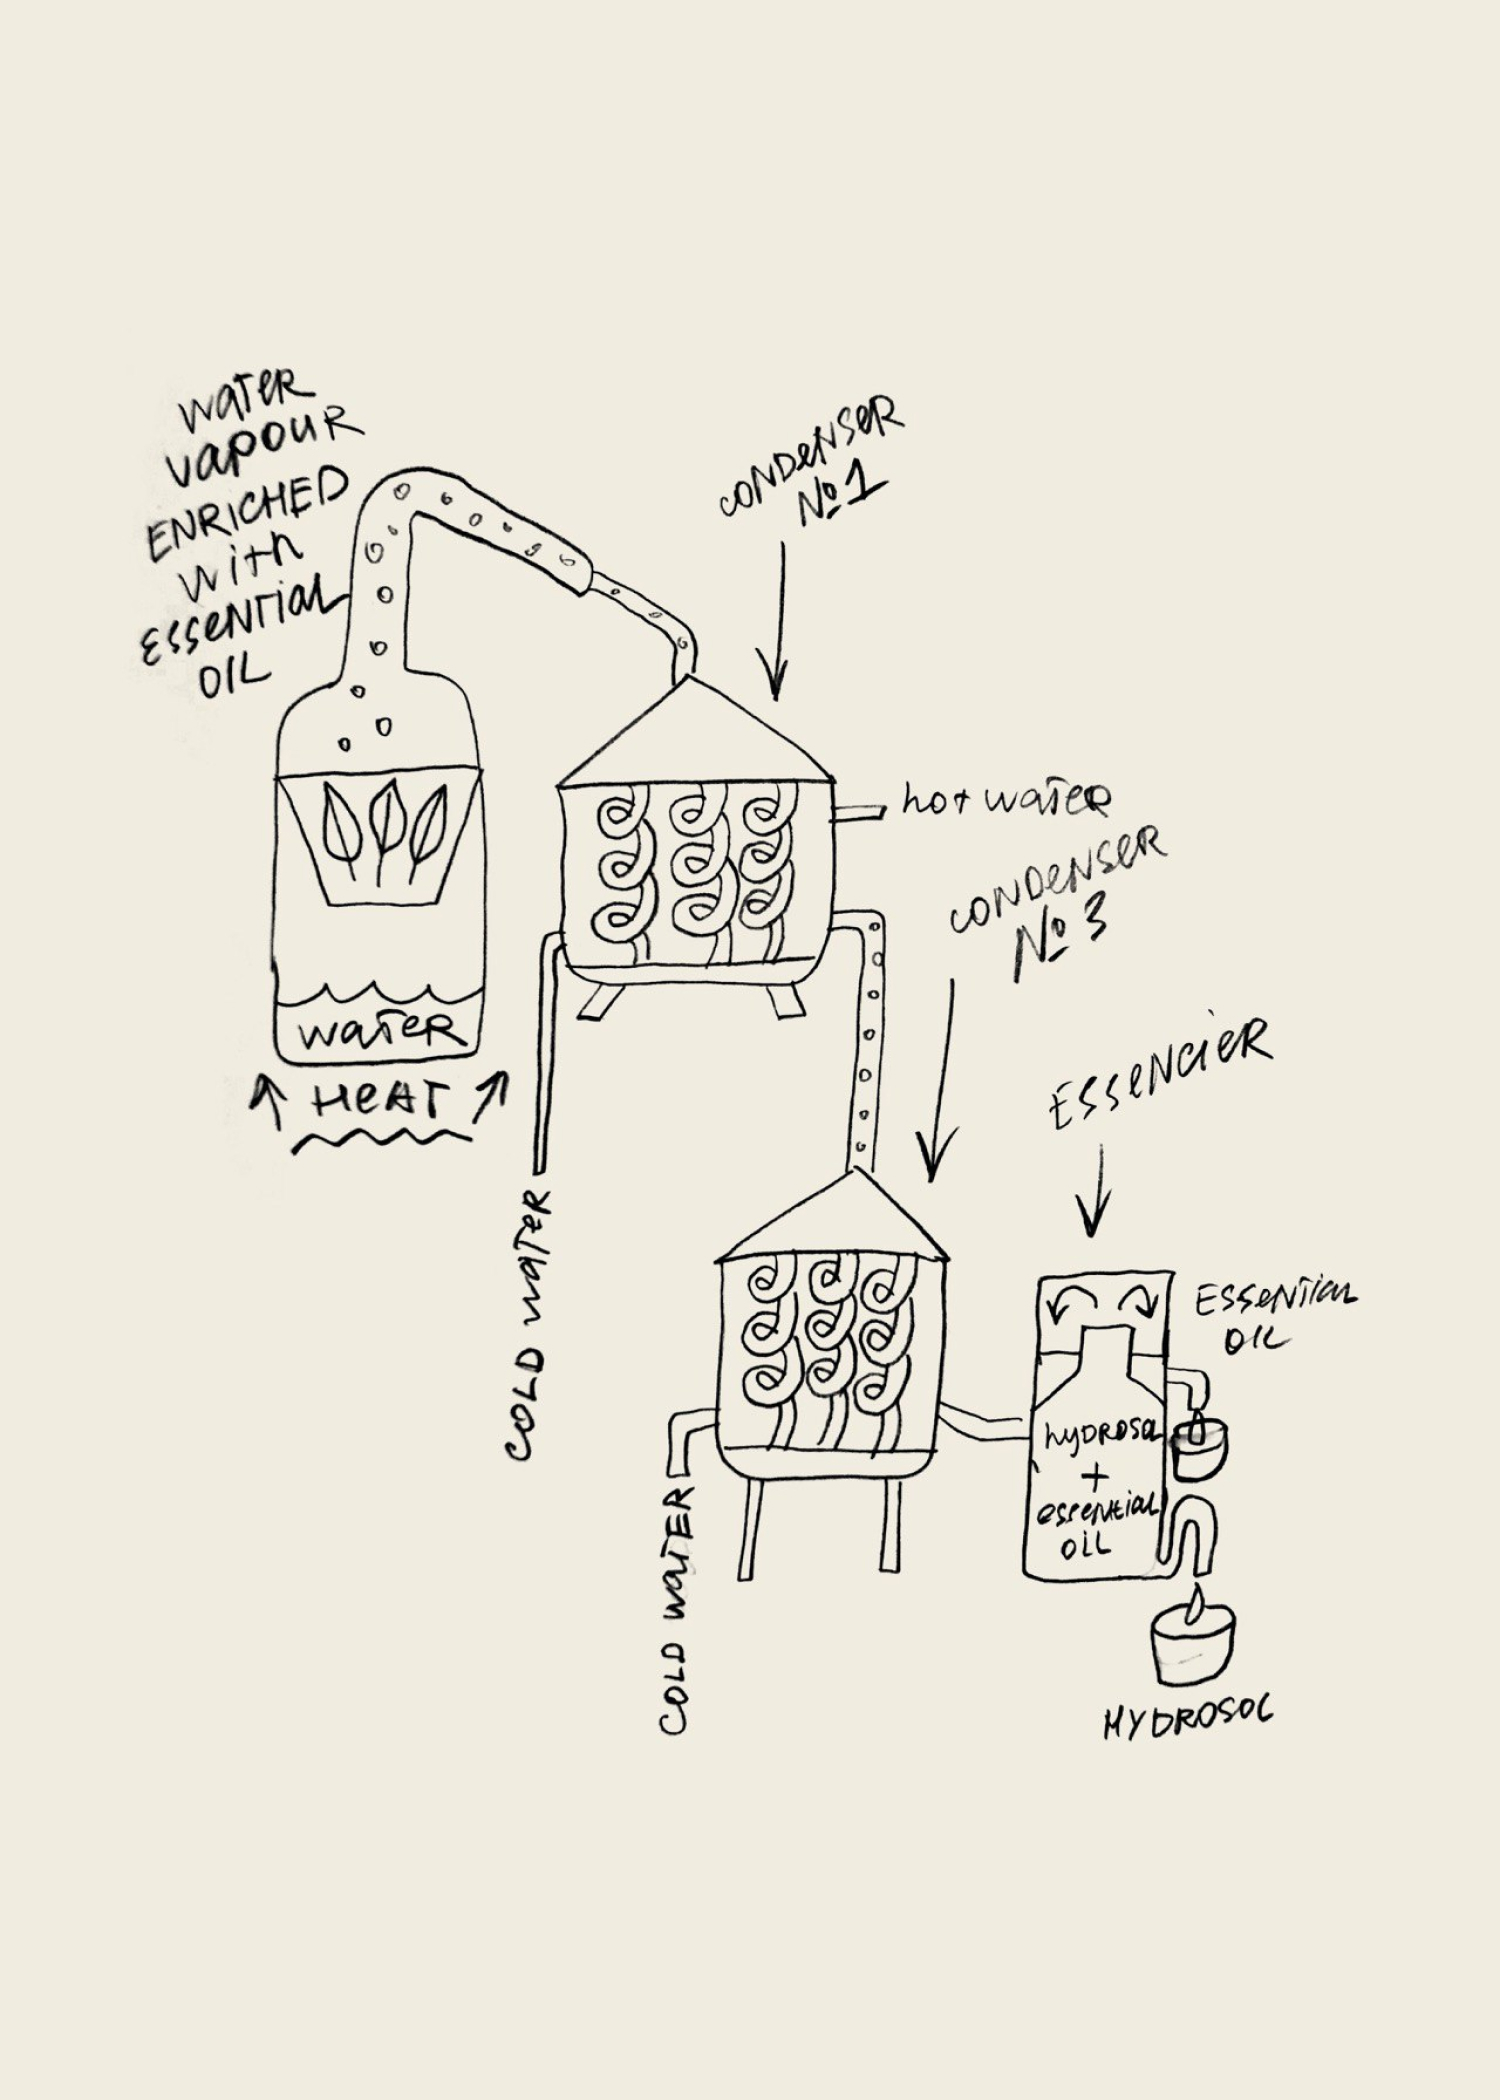 WATER
VAPOUR
ENRICHED
with
ESSENTIAL
OIL
CONDENSER
№1
hot water
CONDENSER
№ 3
water
HEAT
COLD WATER
ESSENCIER
ESSENTIAL
OIL
hydrosol
+
essential
oil
COLD WATER
HYDROSOL